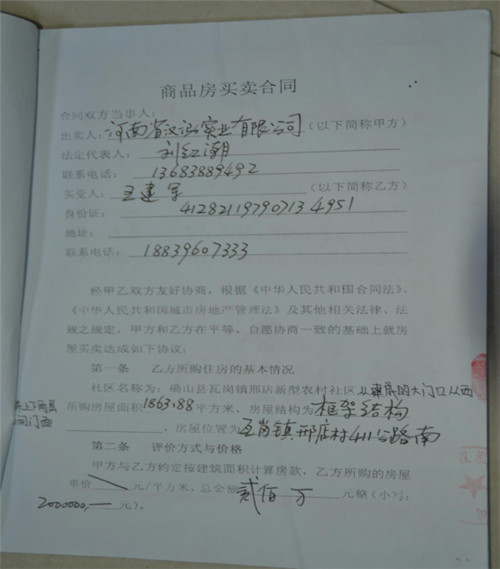 商品房买卖合同
合同双方当事人:
出卖人:河南省汉泓实业有限公司(以下简称甲方)
法定代表人: 刘红潮
联系电话: 13683889492
买受人: 王建军 (以下简称乙方)
身份证: 412821197907134951
地址:
联系电话: 18839607333
经甲乙双方友好协商,根据《中华人民共和国合同法》、
《中华人民共和国城市房地产管理法》及其他相关法律、法
规之规定,甲方和乙方在平等、自愿协商一致的基础上就房
屋买卖达成如下协议:
第一条 乙方所购住房的基本情况
社区名称为:确山县瓦岗镇邢店新型农村社区从东底的大门口从西
所购房屋面积1863.88平方米,房屋结构为框架结构
间门西
,房屋位置为瓦岗镇邢店村411公路南
第二条 评价方式与价格
甲方与乙方约定按建筑面积计算房款,乙方所购的房屋
单价 元/平方米,总金额贰佰万元整(小写:
2000000,—元)。